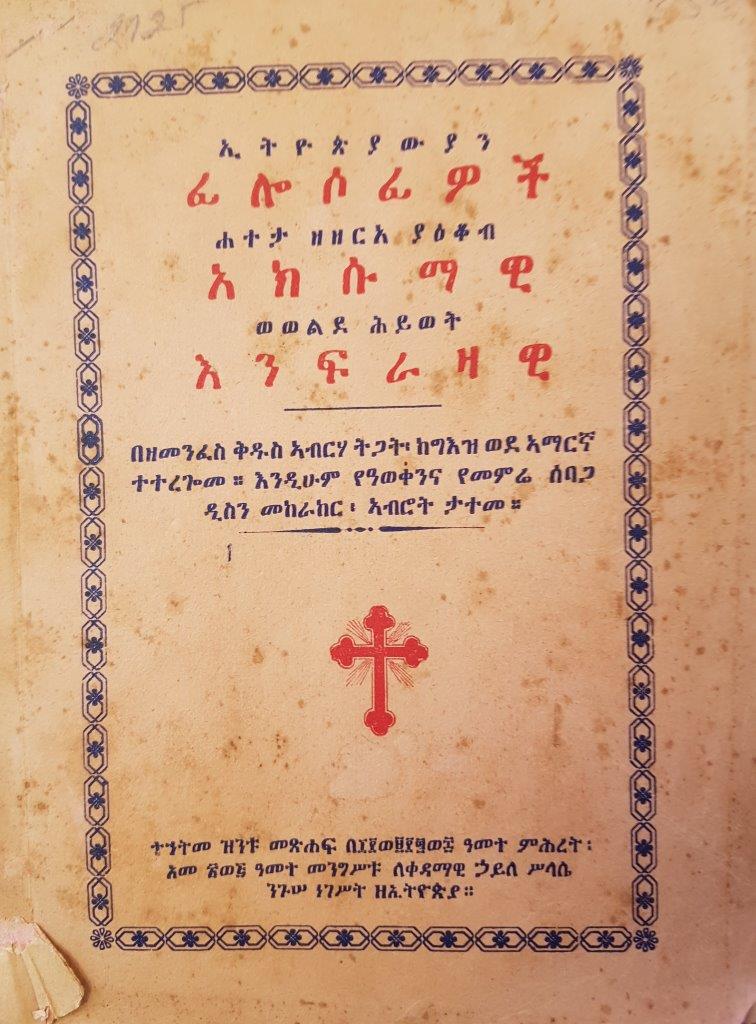 ኢትዮጵያውያን
ፊሎሶፊዎች
ሐተታ ዘዘርአ ያዕቆብ
አክሱማዊ
ወወልደ ሕይወት
እንፍራዛዊ
በዘመንፈስ ቅዱስ ኣብርሃ ትጋት፡ ከግእዝ ወደ ኣማርኛ
ተተረጐመ ። እንዲሁም የዓወቀንና የመምሬ ሰባጋ
ዲስን መከራከር ፡ ኣብሮት ታተመ ።
ተኀትመ ዝንቱ መጽሐፍ ዓመተ ምሕረት ፡
አመ ዓመተ መንግሥቱ ለቀዳማዊ ኃይለ ሥላሴ
ንጉሠ ነገሥት ዘኢትዮጵያ ።